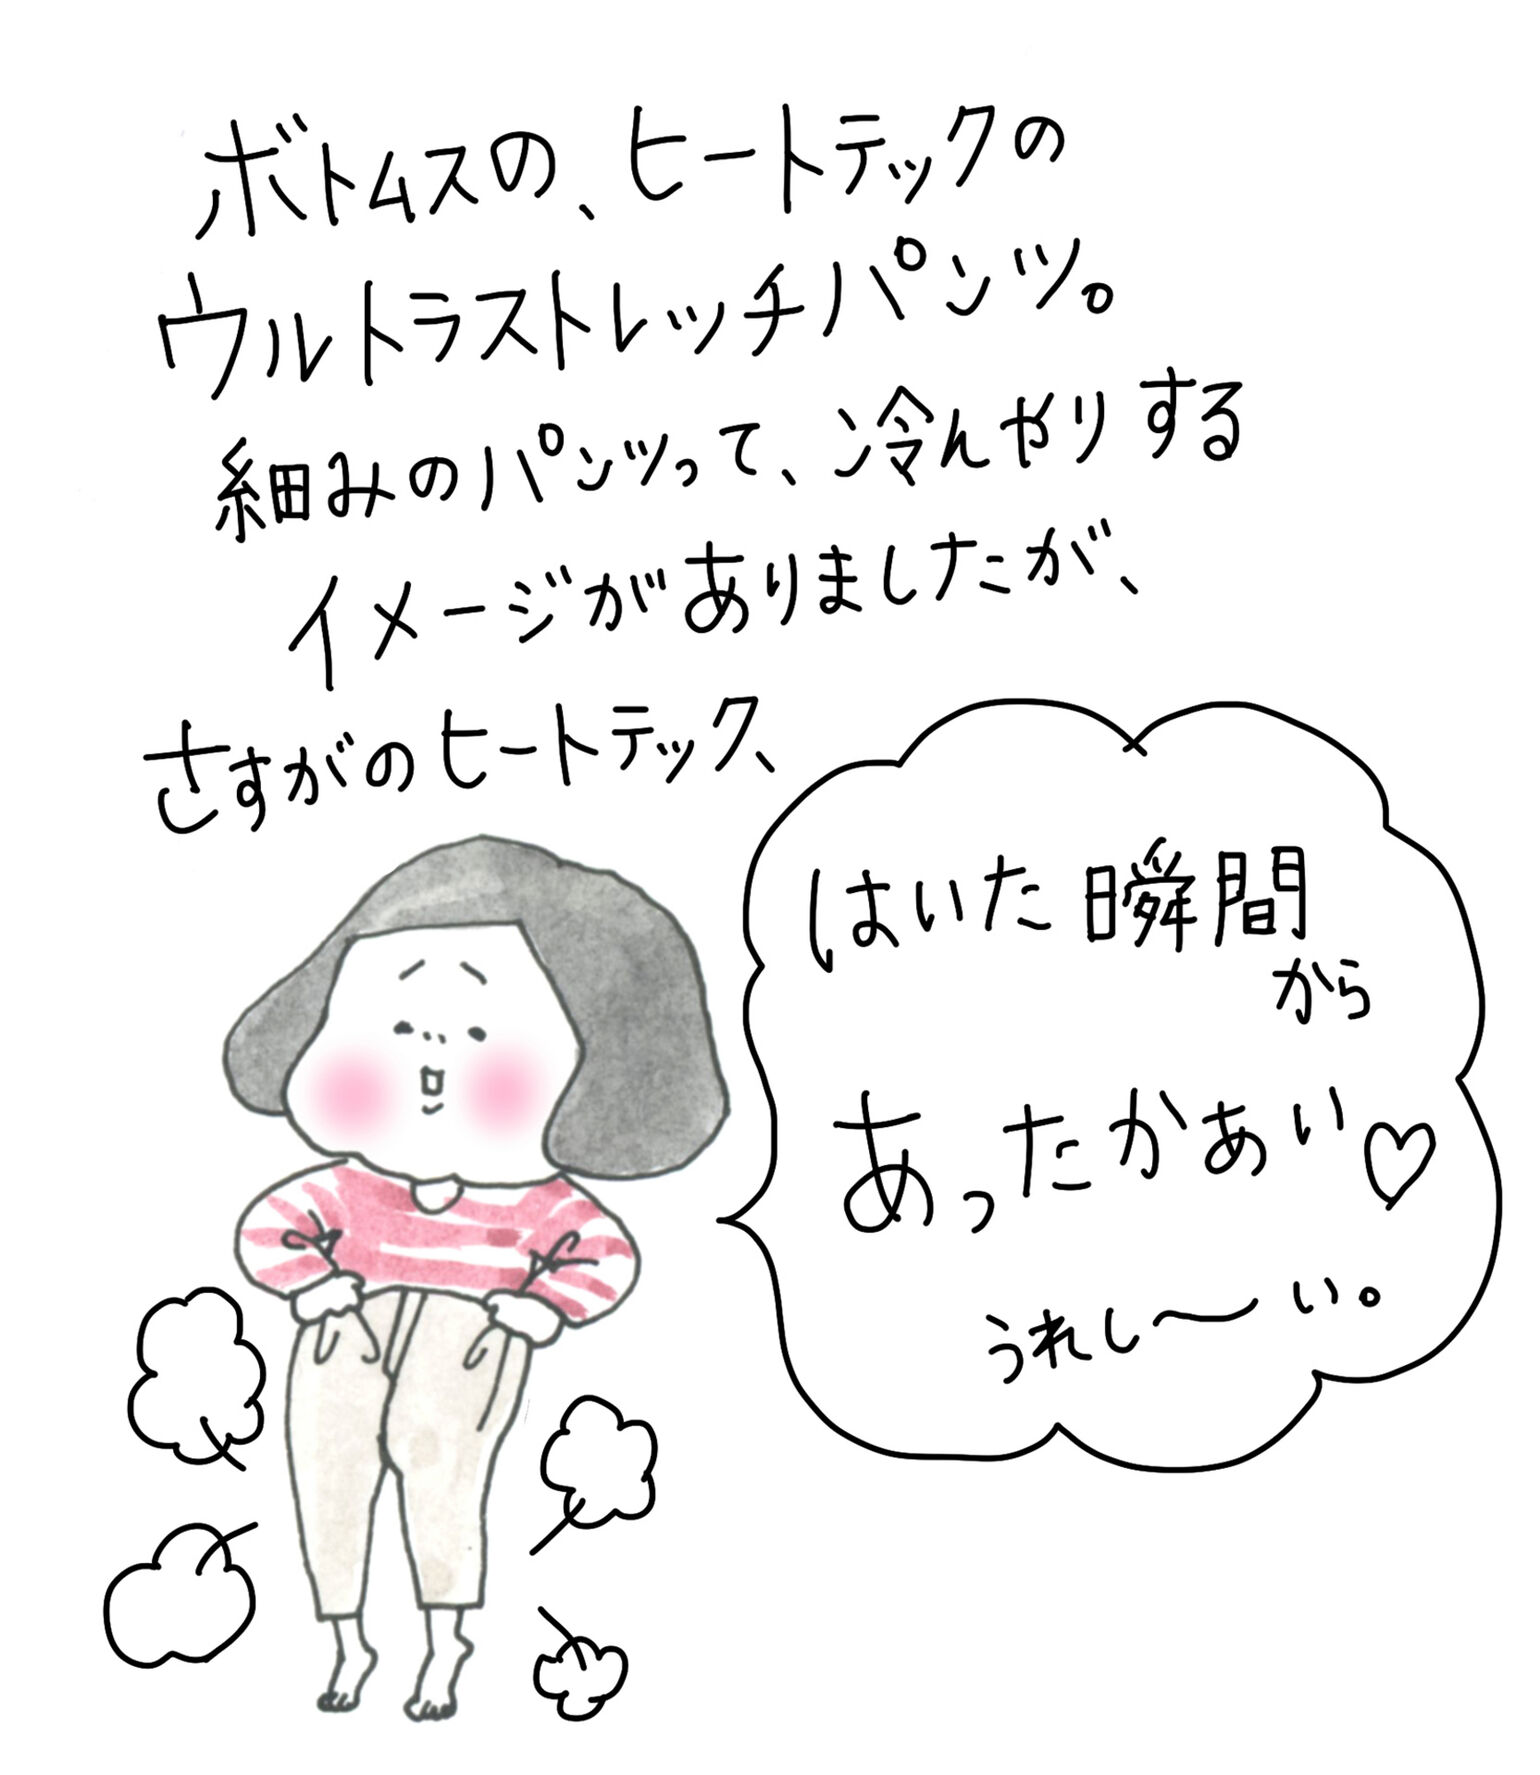 ボトムスの、ヒートテックの
ウルトラストレッチパンツ。
細みのパンツって、冷んやりする
イメージがありましたが、
さすがのヒートテック、
はいた瞬間
から
あったかぁい♡
うれし〜い。